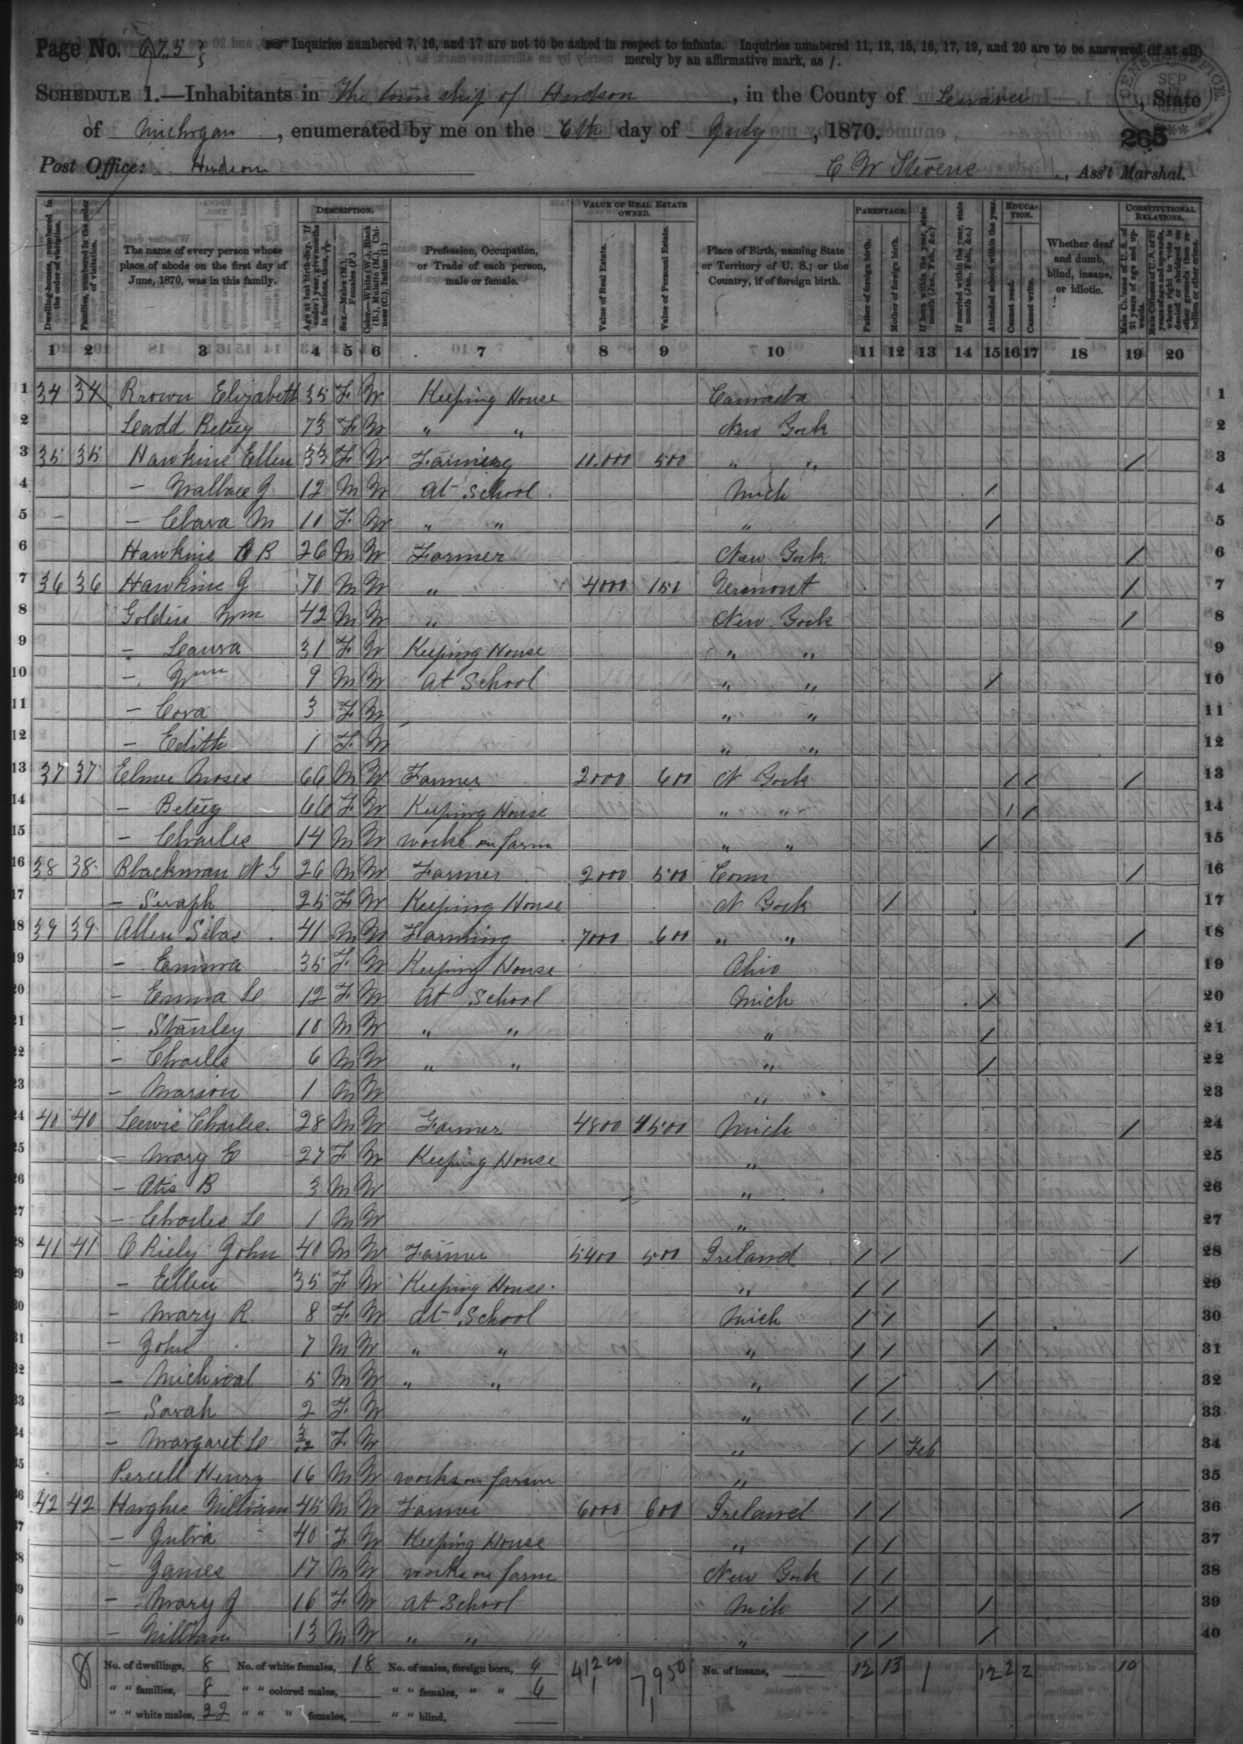 Page No. 675 Inquiries numbered 7, 16, and 17 are not to be asked in respect to infants. Inquiries numbered 11, 12, 15, 16, 17, 19, and 20 are to be answered (if at all)
merely by an affirmative mark, as /.
SCHEDULE 1.—Inhabitants in The township of Hudson, in the County of Lenawee, State
of Michigan, enumerated by me on the 6th day of July, 1870.
265
Post Office: Hudson C W Stevens, Ass't Marshal.
Dwelling-houses, numbered in the order of visitation.
Families, numbered in the order of visitation.
The name of every person whose place of abode on the first day of June, 1870, was in this family.
DESCRIPTION.
Profession, Occupation, or Trade of each person, male or female.
VALUE OF REAL ESTATE OWNED.
Value of Real Estate.
Value of Personal Estate.
Place of Birth, naming State or Territory of U. S.; or the Country, if of foreign birth.
PARENTAGE.
Father of foreign birth.
Mother of foreign birth.
If born within the year, state month (Jan., Feb., &c.)
If married within the year, state month (Jan., Feb., &c.)
Attended school within the year.
EDUCATION.
Cannot read.
Cannot write.
Whether deaf and dumb, blind, insane, or idiotic.
CONSTITUTIONAL RELATIONS.
1 2 3 4 5 6 7 8 9 10 11 12 13 14 15 16 17 18 19 20
1 34 34 Brown Elizabeth 35 F W Keeping House Cannada 1
2 Ladd Betsey 73 F W " " New York 2
3 35 35 Hawkins Ellen 33 F W Farming 11.000 500 " " / 3
4 – Wallace J 12 M W At School Mich / 4
5 – Clara M 10 F W " " " / 5
6 Hawkins B 26 M W Farmer New York / 6
7 36 36 Hawkins J 70 M W " 4000 150 Vermont / 7
8 Golden Wm 42 M W " New York / 8
9 – Laura 31 F W Keeping House " " 9
10 – Wm 9 M W At School " " / 10
11 – Cora 3 F W " " 11
12 – Edith 1 F W " " 12
13 37 37 Elmer Moses 66 M W Farmer 2000 600 N York / / / 13
14 – Betsey 66 F W Keeping House " " / / 14
15 – Charles 14 M W works on farm " " / 15
16 38 38 Blackman N G 26 M W Farmer 2000 500 Conn / 16
17 – Seraph 25 F W Keeping House N York / 17
18 39 39 Allen Silas 41 M W Farming 7000 600 " " / 18
19 – Emma 35 F W Keeping House Ohio 19
20 – Emma L 12 F W At School Mich / 20
21 – Stanley 10 M W " " " / 21
22 – Charles 6 M W " " " / 22
23 – Marion 1 M W " 23
24 40 40 Lewis Charles 28 M W Farmer 4800 1500 Mich / 24
25 – Mary E 27 F W Keeping House " 25
26 – Otis B 3 M W " 26
27 – Charles L 1 M W " 27
28 41 41 O Riely John 40 M W Farmer 5400 500 Ireland / / / 28
29 – Ellen 35 F W Keeping House " / / 29
30 – Mary R 8 F W At School Mich / / / 30
31 – John 7 M W " " " / / / 31
32 – Michial 5 M W " " " / / / 32
33 – Sarah 2 F W " / / 33
34 – Margaret L 3/12 F W " / / Feb 34
35 Percell Henry 16 M W works on farm " 35
36 42 42 Hughes William 45 M W Farmer 6000 600 Ireland / / / 36
37 – Julia 40 F W Keeping House " / / 37
38 – James 17 M W works on farm New York / / 38
39 – Mary J 16 F W At School Mich / / / 39
40 – William 13 M W " " " / / / 40
8 No. of dwellings, 8 No. of white females, 18 No. of males, foreign born, No. of insane, 12 13 1 12 2 2 10
" " families, 8 " " colored males, " " females, " "
" " white males, 22 " " " females, " " blind,